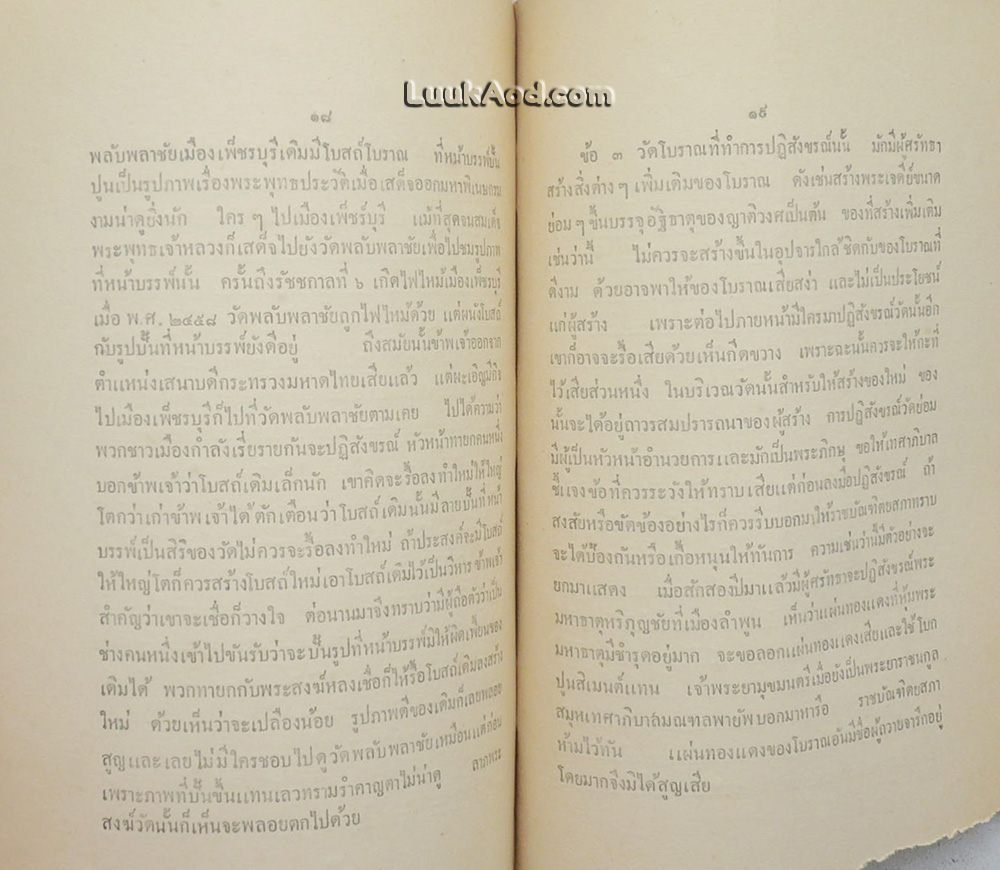 LuukAod.com
๑๘
พลับพลาชัยเมืองเพ็ชรบุรีเดิมมีโบสถ์โบราณ ที่หน้าบรรพ์ปั้น
ปูนเป็นรูปภาพเรื่องพระพุทธประวัติเมื่อเสด็จออกมหาภิเนษกรม
งามน่าดูยิ่งนัก ใคร ๆ ไปเมืองเพ็ชร์บุรี แม้ที่สุดจนสมเด็จ
พระพุทธเจ้าหลวงก็เสด็จไปยังวัดพลับพลาชัยเพื่อไปชมรูปภาพ
ที่หน้าบรรพ์นั้น ครั้นถึงรัชชกาลที่ ๖ เกิดไฟไหม้เมืองเพ็ชรบุรี
เมื่อ พ.ศ. ๒๔๕๘ วัดพลับพลาชัยถูกไฟไหม้ด้วย แต่ผนังโบสถ์
กับรูปปั้นที่หน้าบรรพ์ยังดีอยู่ ถึงสมัยนั้นข้าพเจ้าออกจาก
ตำแหน่งเสนาบดีกระทรวงมหาดไทยเสียแล้ว แต่ผะเอิญมีกิจ
ไปเมืองเพ็ชรบุรีก็ไปที่วัดพลับพลาชัยตามเคย ไปได้ความว่า
พวกชาวเมืองกำลังเรี่ยรายกันจะปฏิสังขรณ์ หัวหน้าทายกคนหนึ่ง
บอกข้าพเจ้าว่าโบสถ์เดิมเล็กนัก เขาคิดจะรื้อลงทำใหม่ให้ใหญ่
โตกว่าเก่าข้าพเจ้าได้ตักเตือนว่าโบสถ์เดิมนั้นมีลายปั้นที่หน้า
บรรพ์เป็นสิริของวัดไม่ควรจะรื้อลงทำใหม่ ถ้าประสงค์จะมีโบสถ์
ให้ใหญ่โตก็ควรสร้างโบสถ์ใหม่เอาโบสถ์เดิมไว้เป็นวิหาร ข้าพเจ้า
สำคัญว่าเขาจะเชื่อก็วางใจ ต่อนานมาจึงทราบว่ามีผู้ถือตัวว่าเป็น
ช่างคนหนึ่งเข้าไปขันรับว่าจะปั้นรูปที่หน้าบรรพ์มิให้ผิดเพี้ยนของ
เดิมได้ พวกทายกกับพระสงฆ์หลงเชื่อก็ให้รื้อโบสถ์เดิมลงสร้าง
ใหม่ ด้วยเห็นว่าจะเปลืองน้อย รูปภาพดีของเดิมก็เลยพลอย
สูญและเลยไม่มีใครชอบไปดูวัดพลับพลาชัยเหมือนแต่ก่อน
เพราะภาพที่ปั้นขึ้นแทนเลวทรามรำคาญตาไม่น่าดู ลาภพระ
สงฆ์วัดนั้นก็เห็นจะพลอยตกไปด้วย
๑๙
ข้อ ๓ วัดโบราณที่ทำการปฏิสังขรณ์นั้น มักมีผู้ศรัทธา
สร้างสิ่งต่าง ๆ เพิ่มเติมของโบราณ ดังเช่นสร้างพระเจดีย์ขนาด
ย่อม ๆ ขึ้นบรรจุอัฐิธาตุของญาติวงศเป็นต้น ของที่สร้างเพิ่มเติม
เช่นว่านี้ ไม่ควรจะสร้างขึ้นในอุปจารใกล้ชิดกับของโบราณที่
ดีงาม ด้วยอาจพาให้ของโบราณเสียสง่า และไม่เป็นประโยชน์
แก่ผู้สร้าง เพราะต่อไปภายหน้ามีใครมาปฏิสังขรณ์วัดนั้นอีก
เขาก็อาจจะรื้อเสียด้วยเห็นกีดขวาง เพราะฉะนั้นควรจะให้กะที่
ไว้เสียส่วนหนึ่ง ในบริเวณวัดนั้นสำหรับให้สร้างของใหม่ ของ
นั้นจะได้อยู่ถาวรสมปรารถนาของผู้สร้าง การปฏิสังขรณ์วัดย่อม
มีผู้เป็นหัวหน้าอำนวยการและมักเป็นพระภิกษุ ขอให้เทศาภิบาล
ชี้แจงข้อที่ควรระวังให้ทราบเสียแต่ก่อนลงมือปฏิสังขรณ์ ถ้า
สงสัยหรือขัดข้องอย่างไรก็ควรรีบบอกมาให้ราชบัณฑิตยสภาทราบ
จะได้ป้องกันหรือเกื้อหนุนให้ทันการ ความเช่นว่านี้มีตัวอย่างจะ
ยกมาแสดง เมื่อสักสองปีมาแล้วมีผู้ศรัทธาจะปฏิสังขรณ์พระ
มหาธาตุหริภุญชัยที่เมืองลำพูน เห็นว่าแผ่นทองแดงที่หุ้มพระ
มหาธาตุมีชำรุดอยู่มาก จะขอลอกแผ่นทองแดงเสียและใช้โบก
ปูนสิเมนต์แทน เจ้าพระยามุขมนตรีเมื่อยังเป็นพระยาราชนกูล
สมุหเทศาภิบาลมณฑลพายัพบอกมาหารือ ราชบัณฑิตยสภา
ห้ามไว้ทัน แผ่นทองแดงของโบราณอันมีชื่อผู้ถวายจารึกอยู่
โดยมากจึงมิได้สูญเสีย